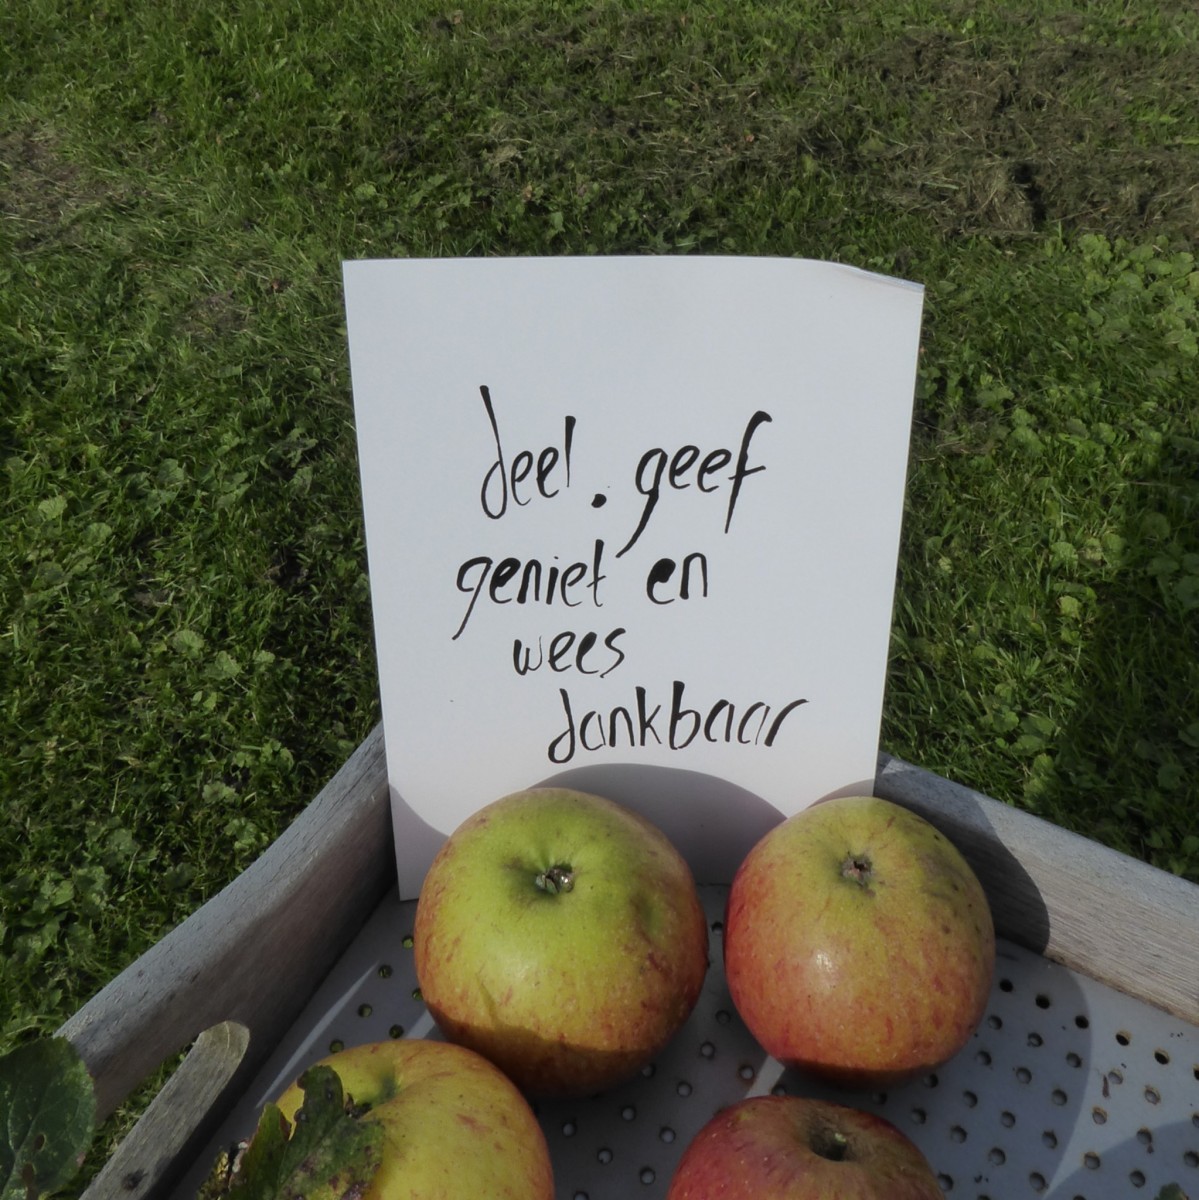 deel. geef
geniet en
wees
dankbaar